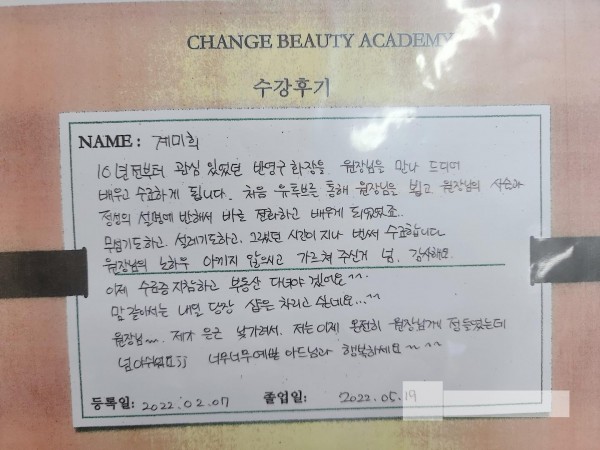 CHANGE BEAUTY ACADEMY
수강후기
NAME : 계미희
10년 전부터 관심 있었던 반영구 화장을 원장님을 만나 드디어
배우고 수료하게 됩니다. 처음 유튜브를 통해 원장님을 뵙고 원장님의
정성의 설명에 반해서 바로 전화하고 배우게 되었었죠..
무섭기도하고, 설레기도하고, 그랬던 시간이 지나 벌써 수료합니다
원장님의 노하우 아끼지 않으시고 가르쳐 주신거 넘, 감사해요.
이제 수료증 지참하고 부동산 다녀야 겠어요^^.
맘 같아서는 내일 당장 샵은 차리고 싶네요...^^
원장님~~. 제가 은근 낯가려서. 저는 이제 온전히 원장님께 정들었는데
넘아쉬워요jj 너무너무예쁜 아드님과 행복하세요~^^
등록일: 2022.02.07 졸업일: 2022.05.19